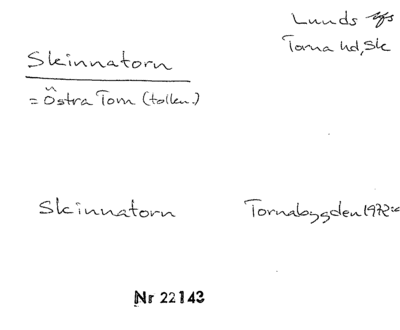 Lunds
Torna hd, Sk
Skinnatorn
= Östra Torn (tolkn.)
Skinnatorn Tornabygden 1972
Nr 22143